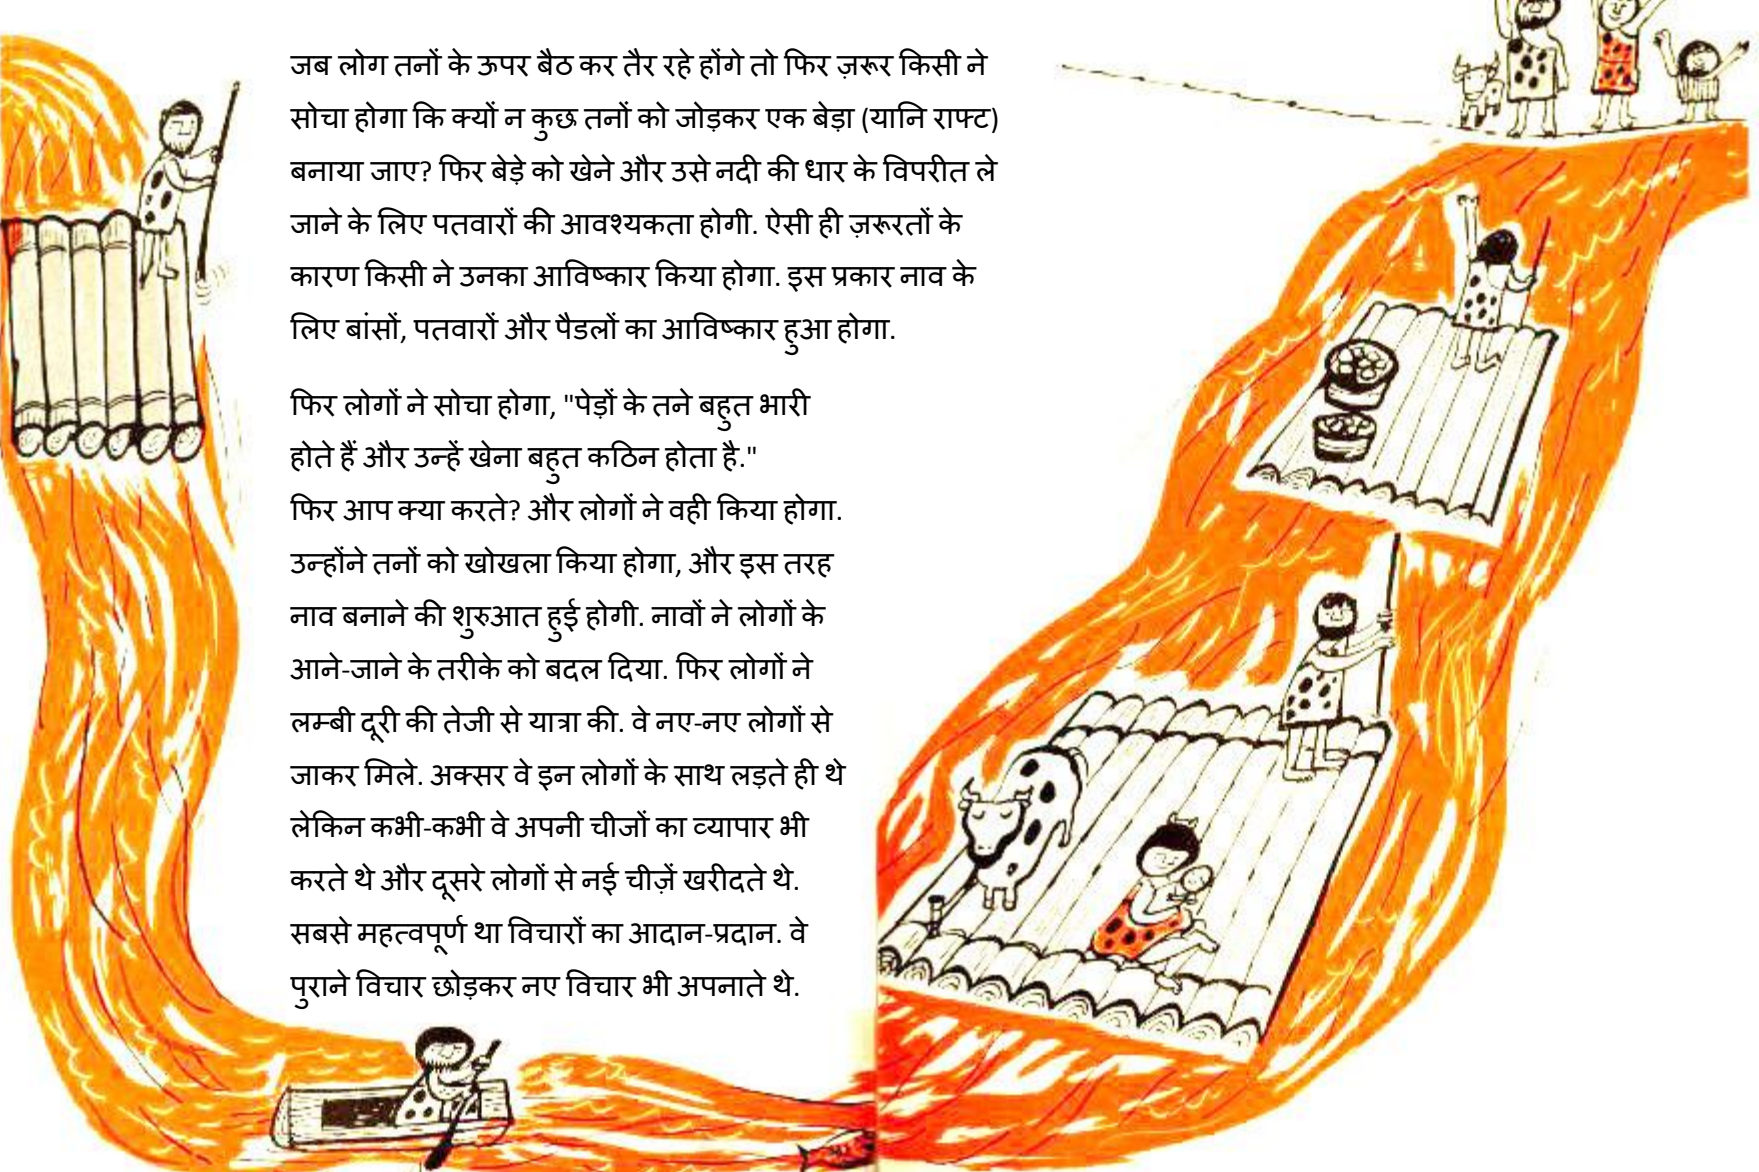 जब लोग तनों के ऊपर बैठ कर तैर रहे होंगे तो फिर ज़रूर किसी ने
सोचा होगा कि क्यों न कुछ तनों को जोड़कर एक बेड़ा (यानि राफ्ट)
बनाया जाए? फिर बेड़े को खेने और उसे नदी की धार के विपरीत ले
जाने के लिए पतवारों की आवश्यकता होगी. ऐसी ही ज़रूरतों के
कारण किसी ने उनका आविष्कार किया होगा. इस प्रकार नाव के
लिए बांसों, पतवारों और पैडलों का आविष्कार हुआ होगा.
फिर लोगों ने सोचा होगा, "पेड़ों के तने बहुत भारी
होते हैं और उन्हें खेना बहुत कठिन होता है."
फिर आप क्या करते? और लोगों ने वही किया होगा.
उन्होंने तनों को खोखला किया होगा, और इस तरह
नाव बनाने की शुरुआत हुई होगी. नावों ने लोगों के
आने-जाने के तरीके को बदल दिया. फिर लोगों ने
लम्बी दूरी की तेजी से यात्रा की. वे नए-नए लोगों से
जाकर मिले. अक्सर वे इन लोगों के साथ लड़ते ही थे
लेकिन कभी-कभी वे अपनी चीजों का व्यापार भी
करते थे और दूसरे लोगों से नई चीज़ें खरीदते थे.
सबसे महत्वपूर्ण था विचारों का आदान-प्रदान. वे
पुराने विचार छोड़कर नए विचार भी अपनाते थे.